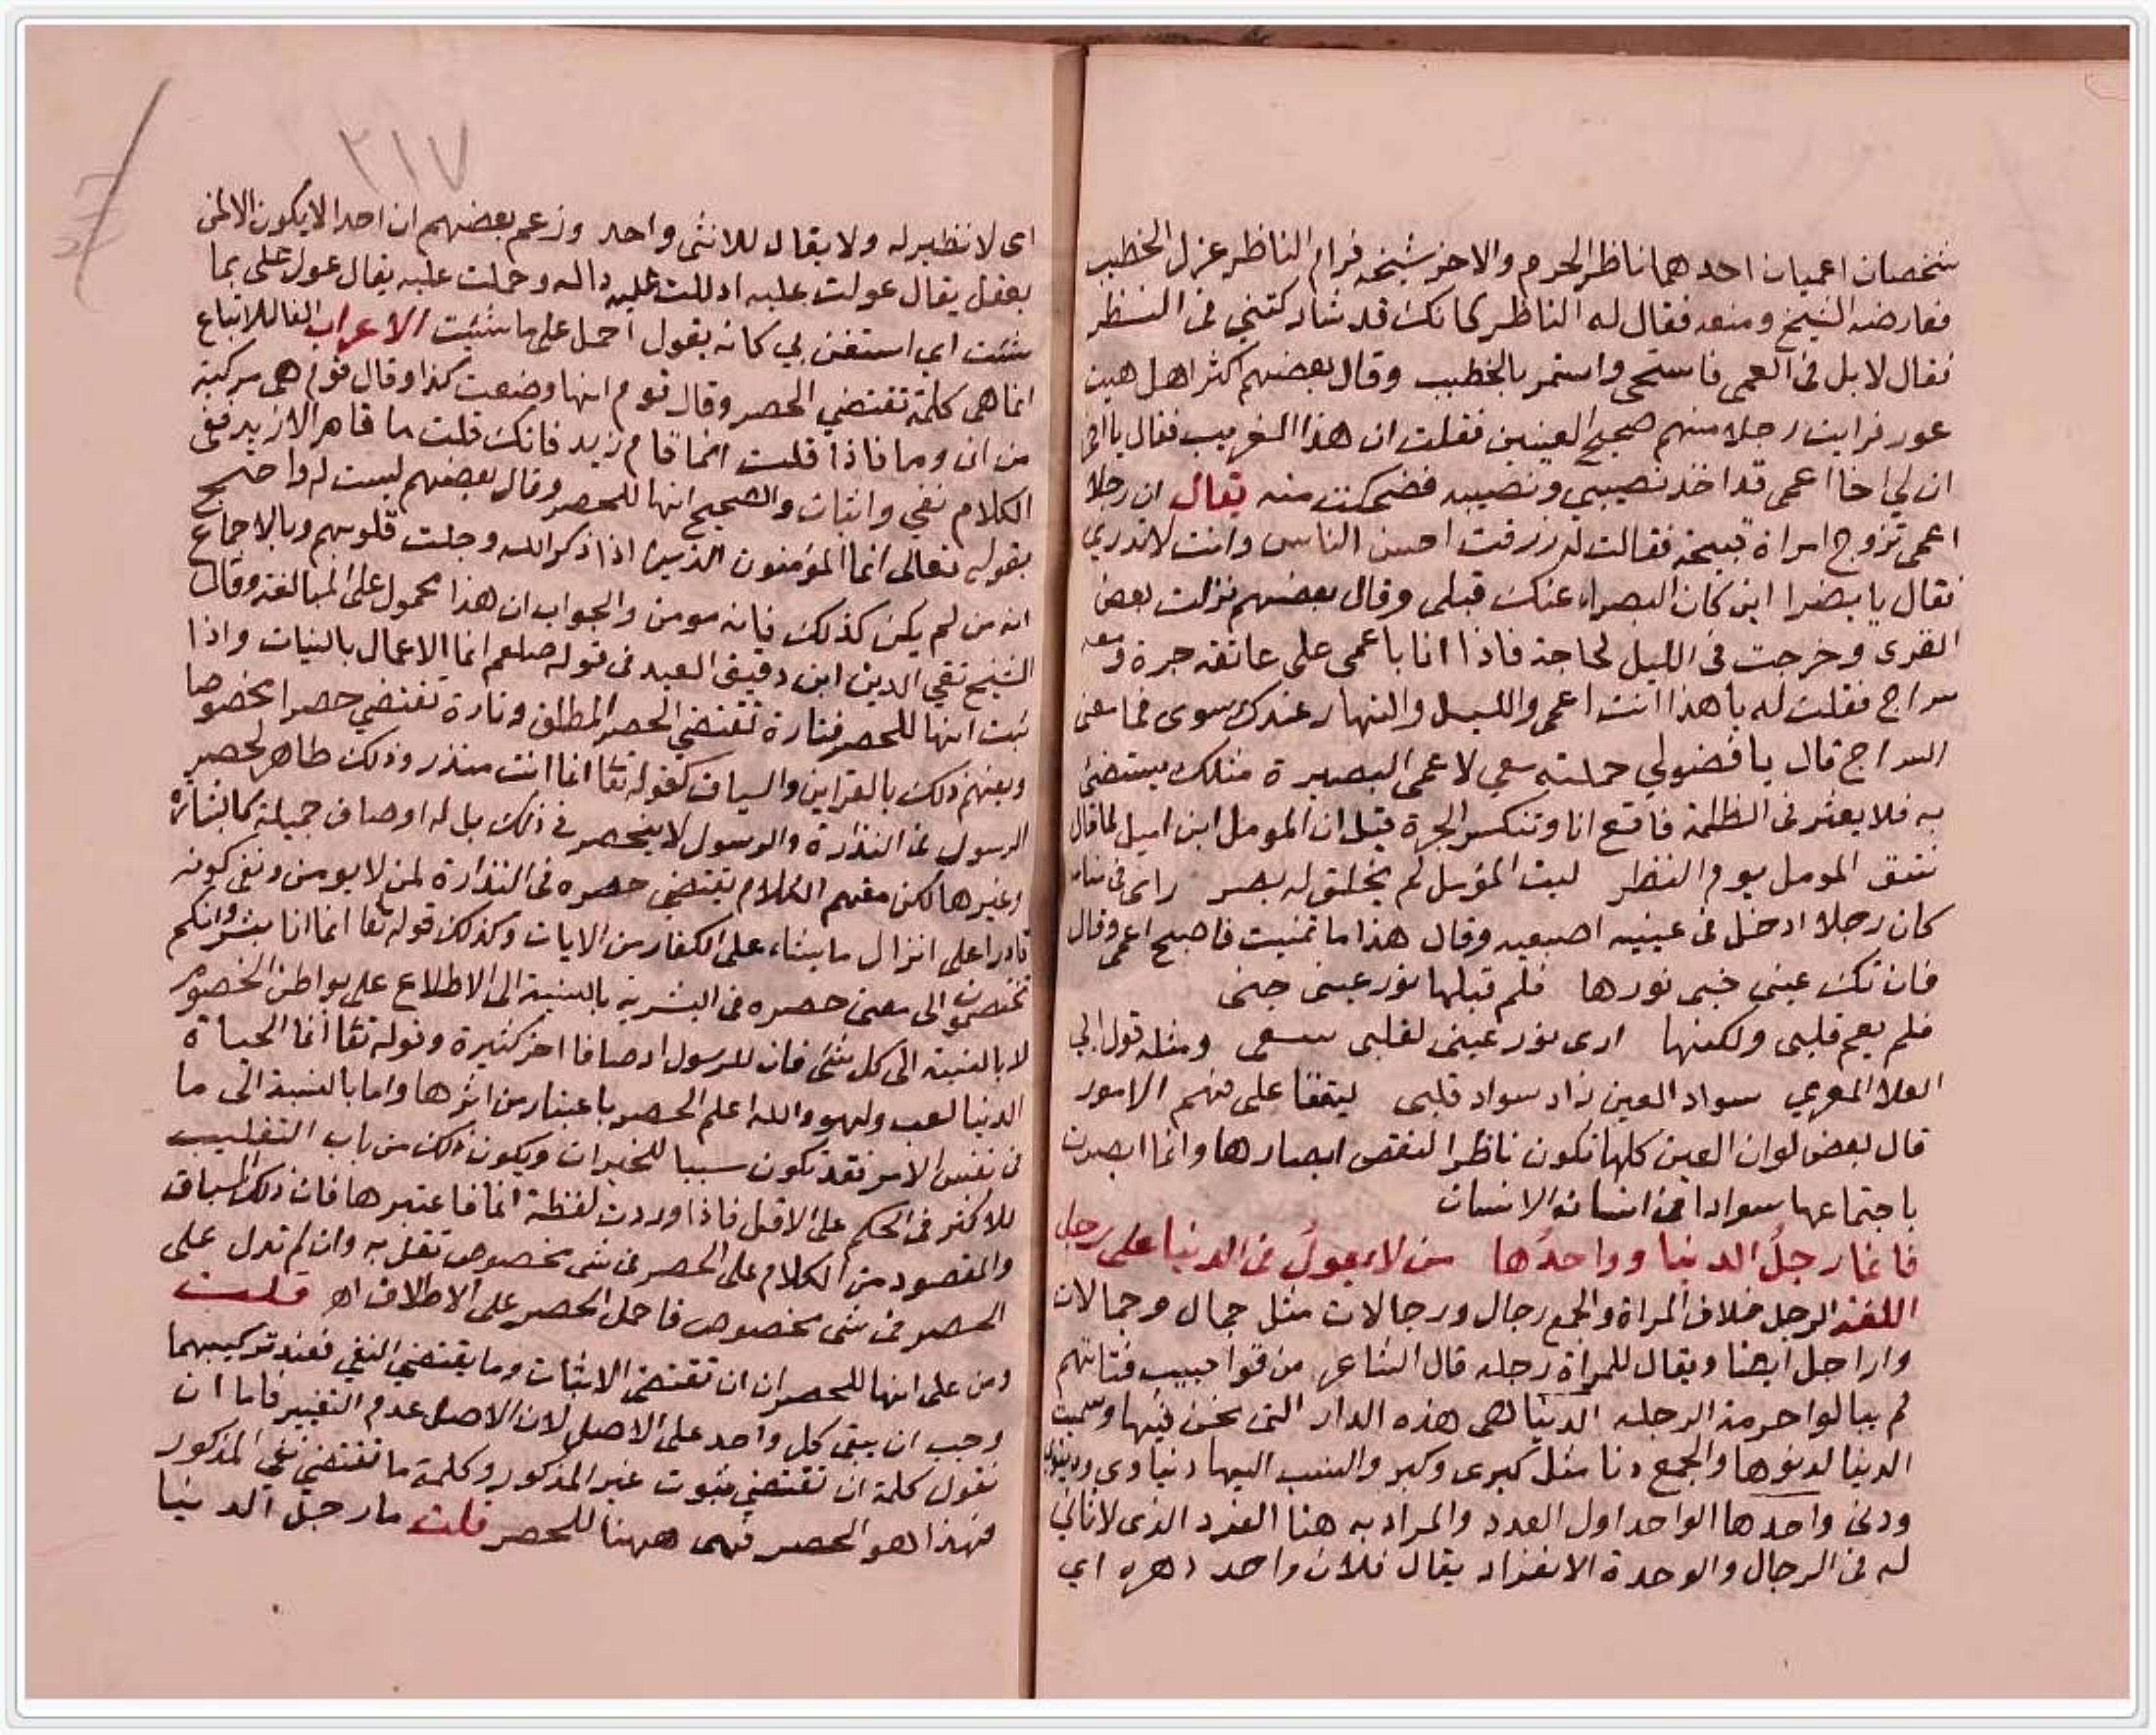 شخصان اعميان احدهما ناظر الحرم والاخر شيخه فرام الناظر عزل الخطيب
فعارضه الشيخ ومنعه فقال له الناظر كانك قد شاركتني في النظر
فقال لا بل في العمى فاستحى واستمر بالخطيب وقال بعضهم اكثر اهل هيت
عور فرايت رجلا منهم صحيح العينين فقلت ان هذا الغريب فقال يا اخي
ان لي اخا اعمى قد اخذ نصيبي ونصيبه فضحكت منه يقال ان رجلا
اعمى تزوج امراة قبيحة فقالت له رزقت احسن الناس وانت لا تدري
فقال يا بضرا اين كان البصراء عنك قبلي وقال بعضهم نزلت بعض
القرى وخرجت في الليل لحاجة فاذا انا باعمى على عاتقه جرة ومعه
سراج فقلت له يا هذا انت اعمى والليل والنهار عندك سوى فما معنى
السراج قال يا فضولي حملته معي لاعمى البصيرة مثلك يستضئ
به فلا يعثر في الظلمة فاقع انا وتنكسر الجرة قيل ان المومل ابن اميل لما قال
المومل يوم النظر ليت المؤمل لم يخلق له بصر راى في منامه
كان رجلا ادخل في عينيه اصبعيه وقال هذا ما تمنيت فاصبح اعمى وقال
فان تك عيني خبى نورها فلم قبلها نور عيني خبى
فلم يعم قلبي ولكنها ارى نور عيني لقلبي سعى ومثله قول ابي
العلا المعري سواد العين زاد سواد قلبي ليتفقا على فهم الامور
قال بعض لو ان العين كلها تكون ناظرا لنقص ابصارها وانما ابصرت
باجتماعها سوادا في انسانه الانسان
فانما رجلُ الدنيا وواحدُها من لا يعولُ في الدنيا على رجل
اللغة الرجل خلاف المراة والجمع رجال ورجالات مثل جمال وجمالات
واراجل ايضا ويقال للمراة رجله قال الشاعر مزقوا جيب فتاتهم
لم يبالوا حرمة الرجله الدنيا هي هذه الدار التي نحن فيها وسميت
الدنيا لدنوها والجمع دنا مثل كبرى وكبر والنسب اليها دنياوي
ودني واحدها الواحد اول العدد والمراد به هنا الفرد الذي لا ثاني
له في الرجال والوحدة الانفراد يقال فلان واحد دهره اي
٣١٧
اى لا نظير له ولا يقال للانثى واحد وزعم بعضهم ان احدا لا يكون الا لمن
يعقل يقال عولت عليه ادللت عليه دالة وحملت عليه يقال عول على بما
شئت اي استعن بي كانه يقول احمل على ما شئت الاعراب الفا للاتباع
انما هى كلمة تقتضي الحصر وقال قوم انها وضعت كذا وقال قوم هى مركبة
من ان وما فاذا قلت انما قام زيد فانك قلت ما قام الا زيد ففى
الكلام نفي واثبات والصحيح انها للحصر وقال بعضهم ليست له واحتج
بقوله تعالى انما المؤمنون الذين اذا ذكر الله وجلت قلوبهم وبالاجماع
انه من لم يكن كذلك فانه مومن والجواب ان هذا محمول على المبالغة وقال
الشيخ تقي الدين ابن دقيق العيد في قوله صلعم انما الاعمال بالنيات واذا
ثبت انها للحصر فتارة تقتضي الحصر المطلق وتارة تقتضي حصرا مخصوصا
ويفهم ذلك بالقراين والسياق كقوله تعا انما انت منذر وذلك ظاهر لحصر
الرسول في النذارة والرسول لا ينحصر في ذلك بل له اوصاف جميلة كالبشارة
وغيرها لكن مفهم الكلام يقتضي حصره في النذارة لمن لا يومن ونفى كونه
قادرا على انزال ما يشاء على الكفار من الايات وكذلك قوله تعا انما انا بشر وانكم
تختصمون الى معنى حصره في البشرية بالنسبة الى الاطلاع على بواطن الخصوم
لا بالنسبة الى كل شئ فان للرسول اوصافا اخر كثيرة وقوله تعا انما الحياة
الدنيا لعب ولهو والله اعلم الحصر باعتبار من اثرها واما بالنسبة الى ما
في نفس الامر فقد تكون سببا للخيرات ويكون ذلك من باب التغليب
للاكثر في الحكم على الاقل فاذا وردت لفظة انما فاعتبرها فان دلك السياق
والمقصود من الكلام على الحصر في شى مخصوص فقل به وان لم تدل على
الحصر في شى مخصوص فاحمل الحصر على الاطلاق اه قلت
ومن على انها للحصر ان ان تقتضى الاثبات وما يقتضي النفي فعند تركيبهما
وجب ان يبقى كل واحد على الاصل لان الاصل عدم التغيير فاما ان
نقول كلمة ان تقتضي ثبوت غير المذكور وكلمة ما تقتضي نفى المذكور
فهذا هو الحصر فهى ههنا للحصر قلت ما رجل الدنيا